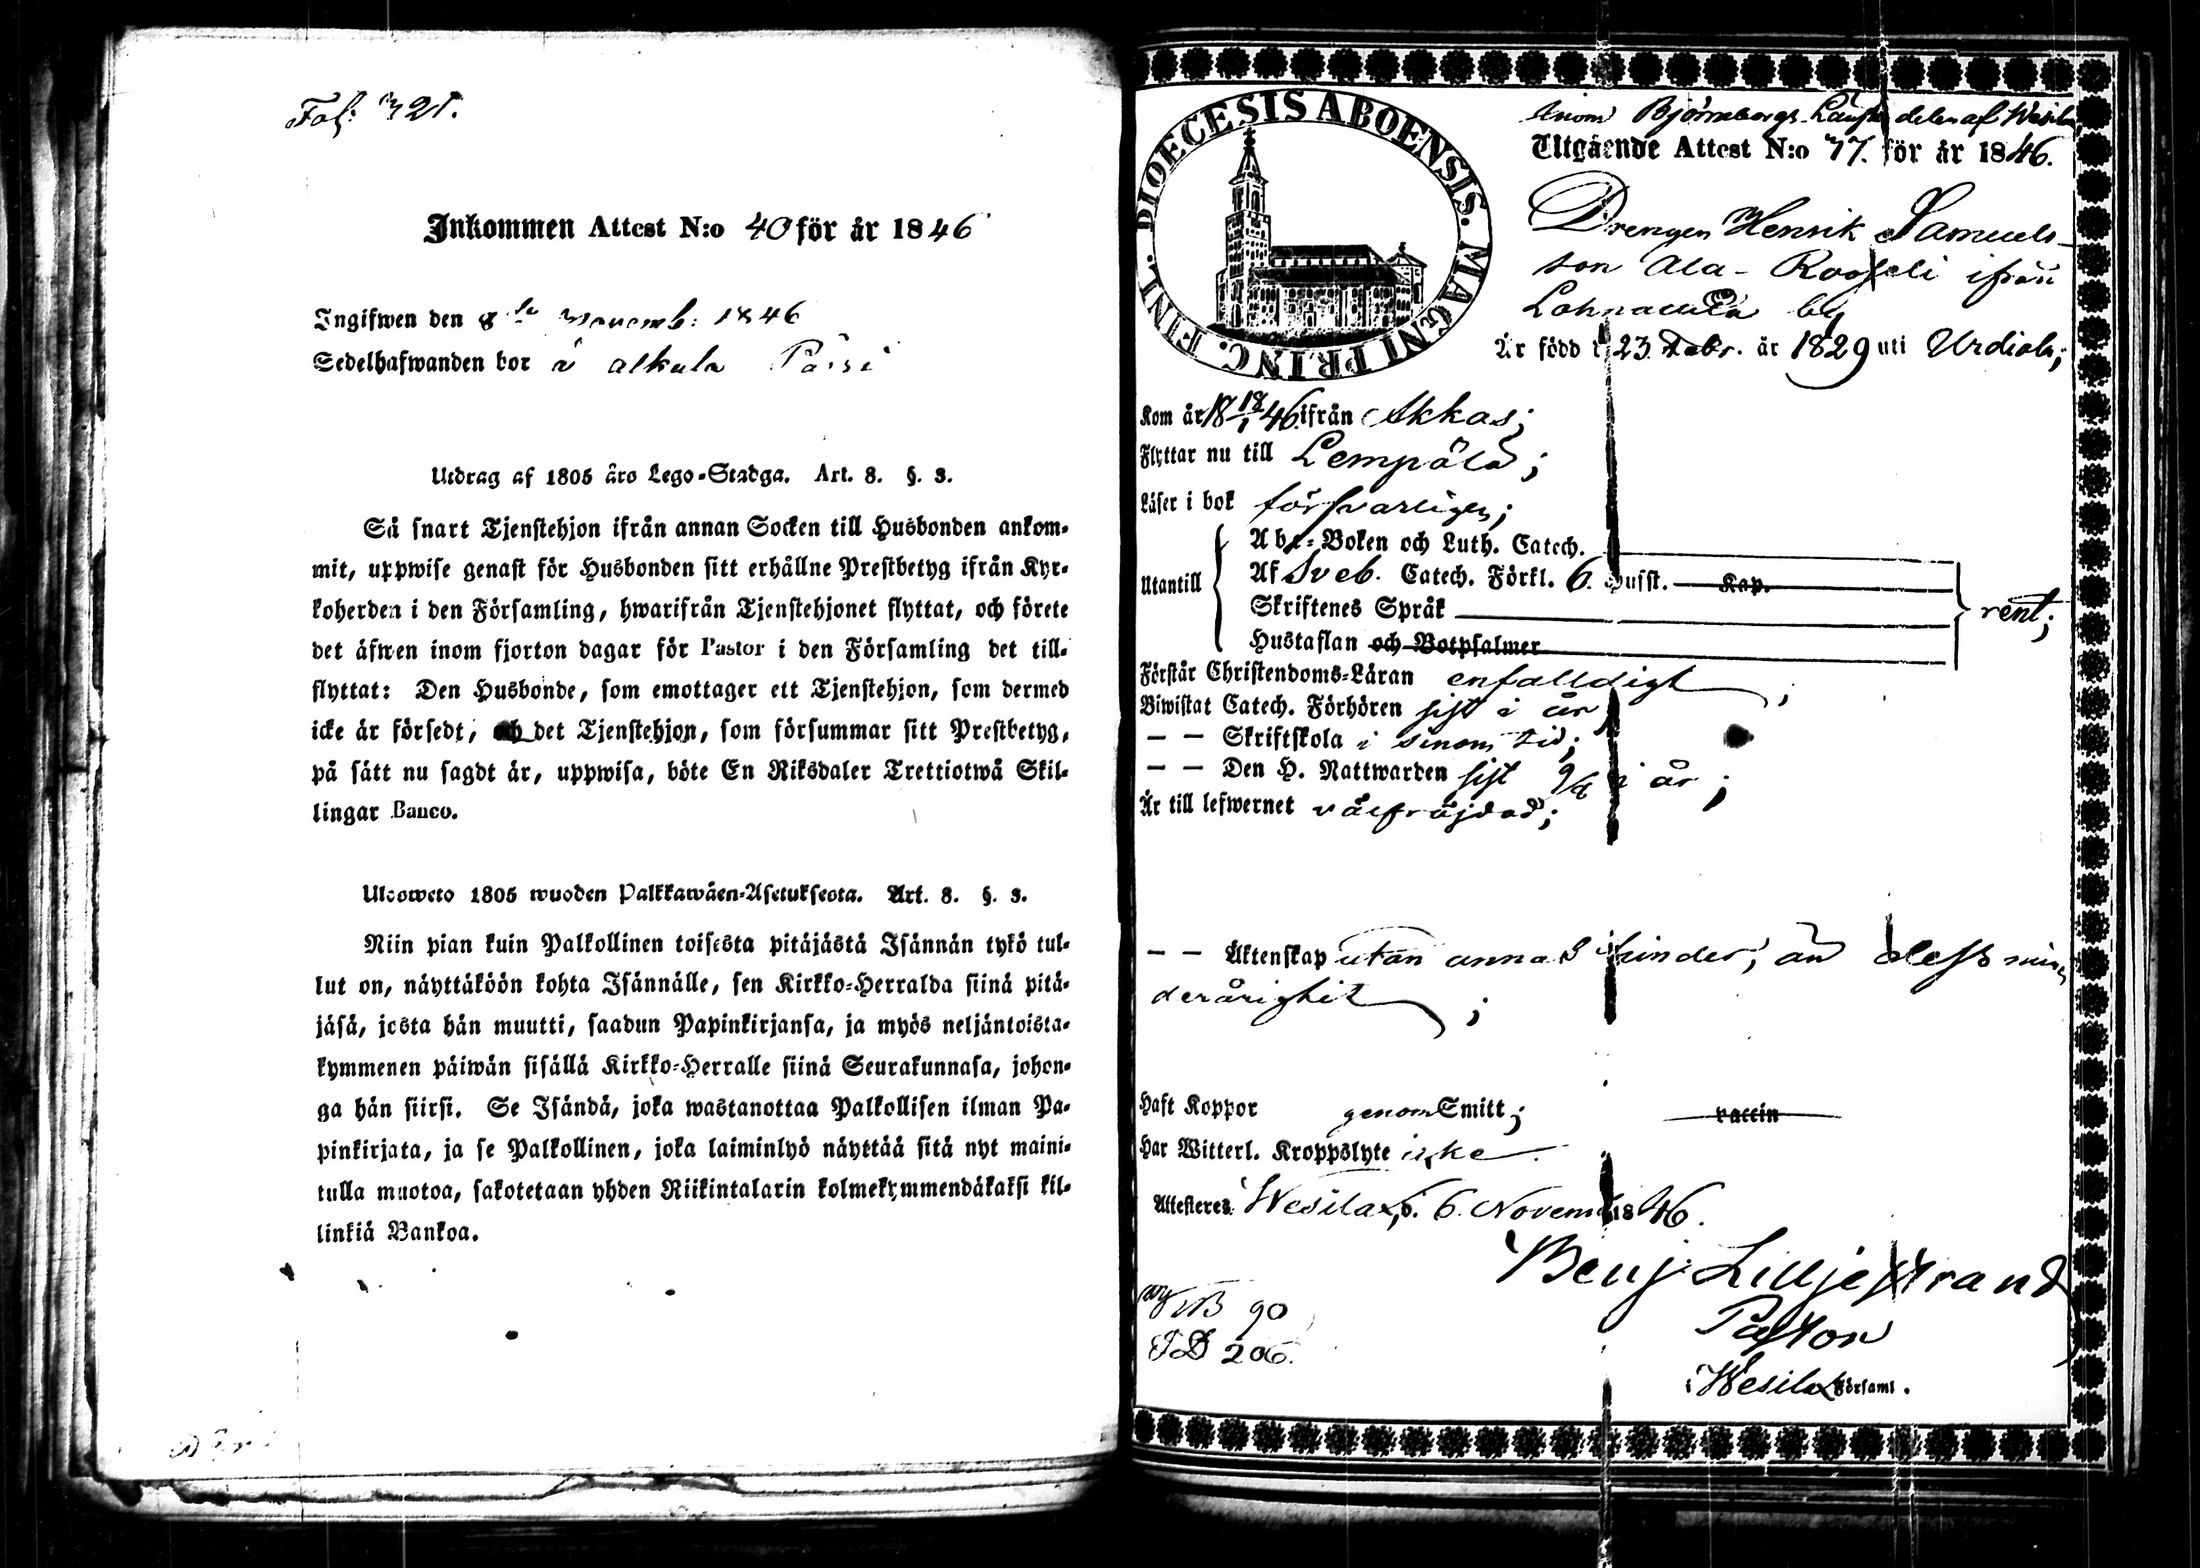 Fol: 321.
Inkommen Attest N:o 40 för år 1846
Ingifwen den 8de Novemb: 1846
Sedelhafwanden bor i Alkula
Utdrag af 1805 års Lego-Stadga. Art. 8. §. 3.
Så snart Tjenstehjon ifrån annan Socken till Husbonden ankom-
mit, uppwise genast för Husbonden sitt erhållne Prestbetyg ifrån Kyr-
koherden i den Församling, hwarifrån Tjenstehjonet flyttat, och förete
det äfwen inom fjorton dagar för Pastor i den Församling det till-
flyttat: Den Husbonde, som emottager ett Tjenstehjon, som dermed
icke är försedt, och det Tjenstehjon, som försummar sitt Prestbetyg,
på sätt nu sagdt är, uppwisa, böte En Riksdaler Trettiotwå Skil-
lingar Banco.
Ulosweto 1805 wuoden Palkkawäen-Asetuksesta. Art. 8. §. 3.
Niin pian kuin Palkollinen toisesta pitäjästä Isännän tykö tul-
lut on, näyttäköön kohta Isännälle, sen Kirkko-Herralda siinä pitä-
jäsä, josta hän muutti, saadun Papinkirjansa, ja myös neljäntoista-
kymmenen päiwän sisällä Kirkko-Herralle siinä Seurakunnasa, johon-
ga hän siirsi. Se Isändä, joka wastanottaa Palkollisen ilman Pa-
pinkirjata, ja se Palkollinen, joka laiminlyö näyttää sitä nyt maini-
tulla muotoa, sakotetaan yhden Riikintalarin kolmekymmendäkaksi kil-
linkiä Bankoa.
DIOECESIS ABOENSIS. MAGNI PRINC. FINL.
Inom Björneborgs Läns delen af Wesilax
Utgående Attest N:o 77. för år 1846.
Drengen Henrik Samuels-
son Ala-Rooseli ifrån
by
Är född i 23 år 1829 uti Urdiala;
Kom år 18 18/1 46. ifrån Akkas;
Flyttar nu till Lempälä;
Läser i bok försvarligen;
Utantill
Abc-Boken och Luth. Catech.
Af Sveb. Catech. Förkl. 6. Hufst. Kap.
Skriftenes Språk
Hustaflan och Botpsalmer
rent;
Förstår Christendoms-Läran enfalldigt;
Biwistat Catech. Förhören sist i år;
— — Skriftskola i sinom tid;
— — Den H. Nattwarden sist i år;
Är till lefwernet välfräjdad;
— — Äktenskap utan annat hinder, än dess min-
derårighet;
Haft Koppor genom Smitt; vaccin
Har Witterl. Kroppslyte icke.
Attesteres: Wesilax, d. 6. Novemb. 1846.
Benj. Liljestrand
Pastor
i Wesilax Församl.
NB 90
206.